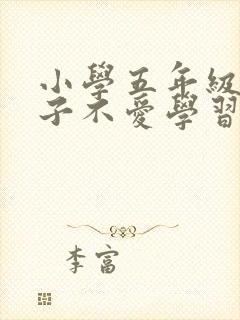 小學五年級
子不愛學習
李富